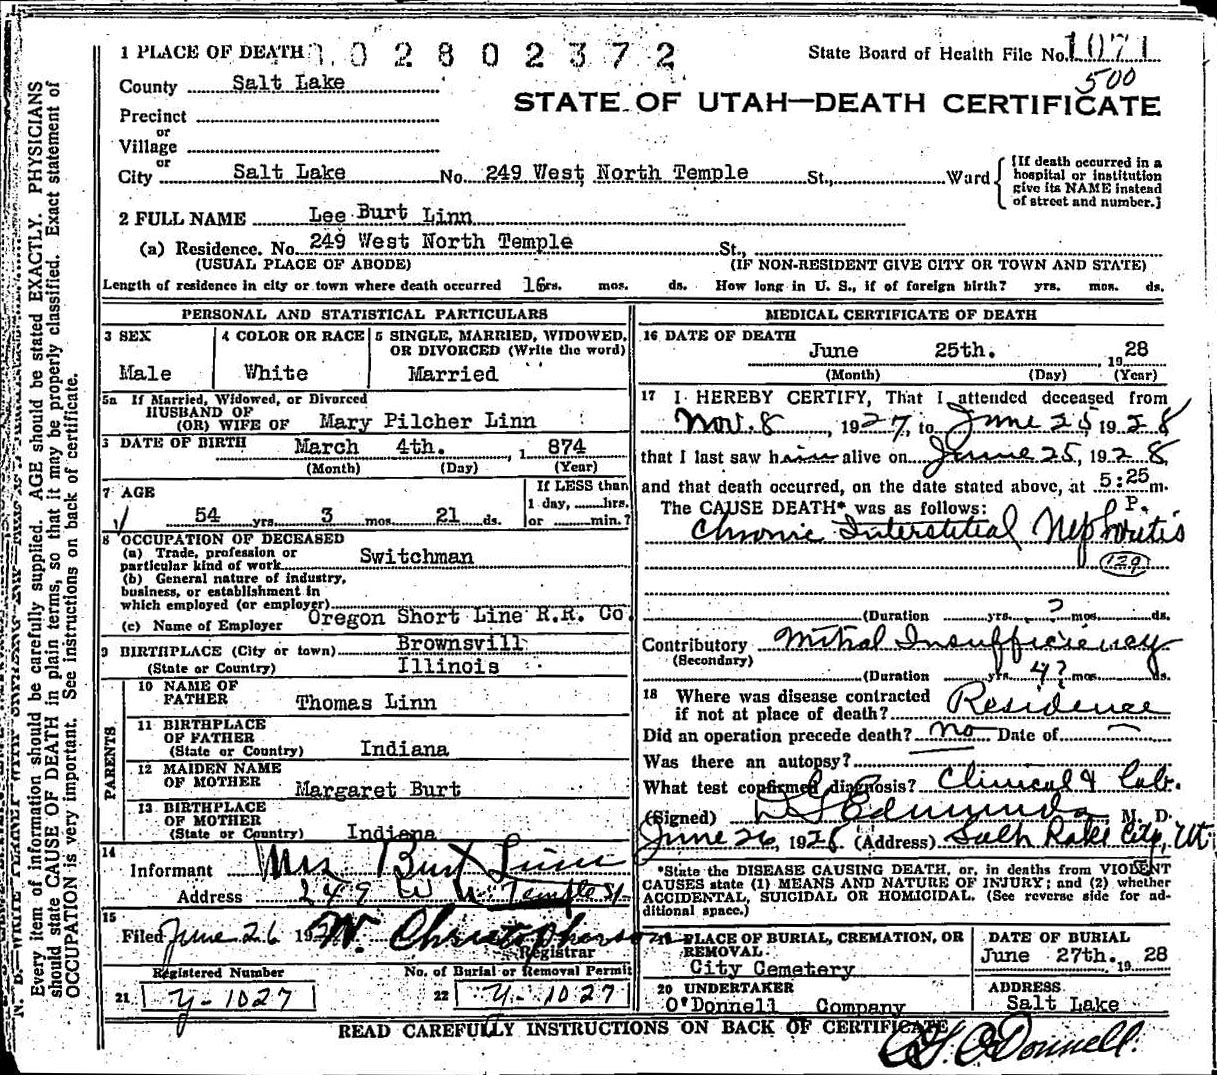 1 PLACE OF DEATH 02802372 State Board of Health File No. 1071
500
County Salt Lake
STATE OF UTAH—DEATH CERTIFICATE
Precinct
or
Village
or
City Salt Lake No. 249 West North Temple St., Ward
[If death occurred in a
hospital or institution
give its NAME instead
of street and number.]
2 FULL NAME Lee Burt Linn
(a) Residence. No. 249 West North Temple St.,
(USUAL PLACE OF ABODE) (IF NON-RESIDENT GIVE CITY OR TOWN AND STATE)
Length of residence in city or town where death occurred 16 yrs. mos. ds. How long in U. S., if of foreign birth? yrs. mos. ds.
PERSONAL AND STATISTICAL PARTICULARS
3 SEX
Male
4 COLOR OR RACE
White
5 SINGLE, MARRIED, WIDOWED,
OR DIVORCED (Write the word)
Married
5a If Married, Widowed, or Divorced
HUSBAND OF
(OR) WIFE OF Mary Pilcher Linn
DATE OF BIRTH March 4th. , 1 874
(Month) (Day) (Year)
7 AGE
54 yrs. 3 mos. 21 ds.
If LESS than
1 day, hrs.
or min.?
8 OCCUPATION OF DECEASED
(a) Trade, profession or
particular kind of work Switchman
(b) General nature of industry,
business, or establishment in
which employed (or employer)
(c) Name of Employer Oregon Short Line R.R. Co.
9 BIRTHPLACE (City or town) Brownsvill
(State or Country) Illinois
PARENTS
10 NAME OF
FATHER Thomas Linn
11 BIRTHPLACE
OF FATHER
(State or Country) Indiana
12 MAIDEN NAME
OF MOTHER Margaret Burt
13 BIRTHPLACE
OF MOTHER
(State or Country) Indiana
14
Informant Mrs Burt Linn
Address 249 W N. Temple St.
15
Filed June 26 1928 W. Christopherson
Registrar
Registered Number No. of Burial or Removal Permit
21 Y-1027 22 Y-1027
MEDICAL CERTIFICATE OF DEATH
16 DATE OF DEATH
June 25th. , 19 28
(Month) (Day) (Year)
17 I HEREBY CERTIFY, That I attended deceased from
Nov. 8, 1927, to June 25 1928
that I last saw him alive on June 25, 1928,
and that death occurred, on the date stated above, at 5:25 m.
The CAUSE DEATH* was as follows: P.
Chronic Interstitial Nephritis
129
(Duration yrs. ? mos. ds.
Contributory Mitral Insufficiency
(Secondary)
(Duration yrs. 4? mos. ds.
18 Where was disease contracted
if not at place of death? Residence
Did an operation precede death? no Date of
Was there an autopsy?
What test confirmed diagnosis? Clinical & Lab.
(Signed) D G Edmunds M. D.
June 26, 1928 (Address) Salt Lake City, Ut
*State the DISEASE CAUSING DEATH, or, in deaths from VIOLENT
CAUSES state (1) MEANS AND NATURE OF INJURY; and (2) whether
ACCIDENTAL, SUICIDAL OR HOMICIDAL. (See reverse side for ad-
ditional space.)
19 PLACE OF BURIAL, CREMATION, OR
REMOVAL
City Cemetery
DATE OF BURIAL
June 27th. 19 28
20 UNDERTAKER
O'Donnell Company
ADDRESS
Salt Lake
READ CAREFULLY INSTRUCTIONS ON BACK OF CERTIFICATE
O'Donnell.
Every item of information should be carefully supplied. AGE should be stated EXACTLY. PHYSICIANS
should state CAUSE OF DEATH in plain terms, so that it may be properly classified. Exact statement of
OCCUPATION is very important. See instructions on back of certificate.